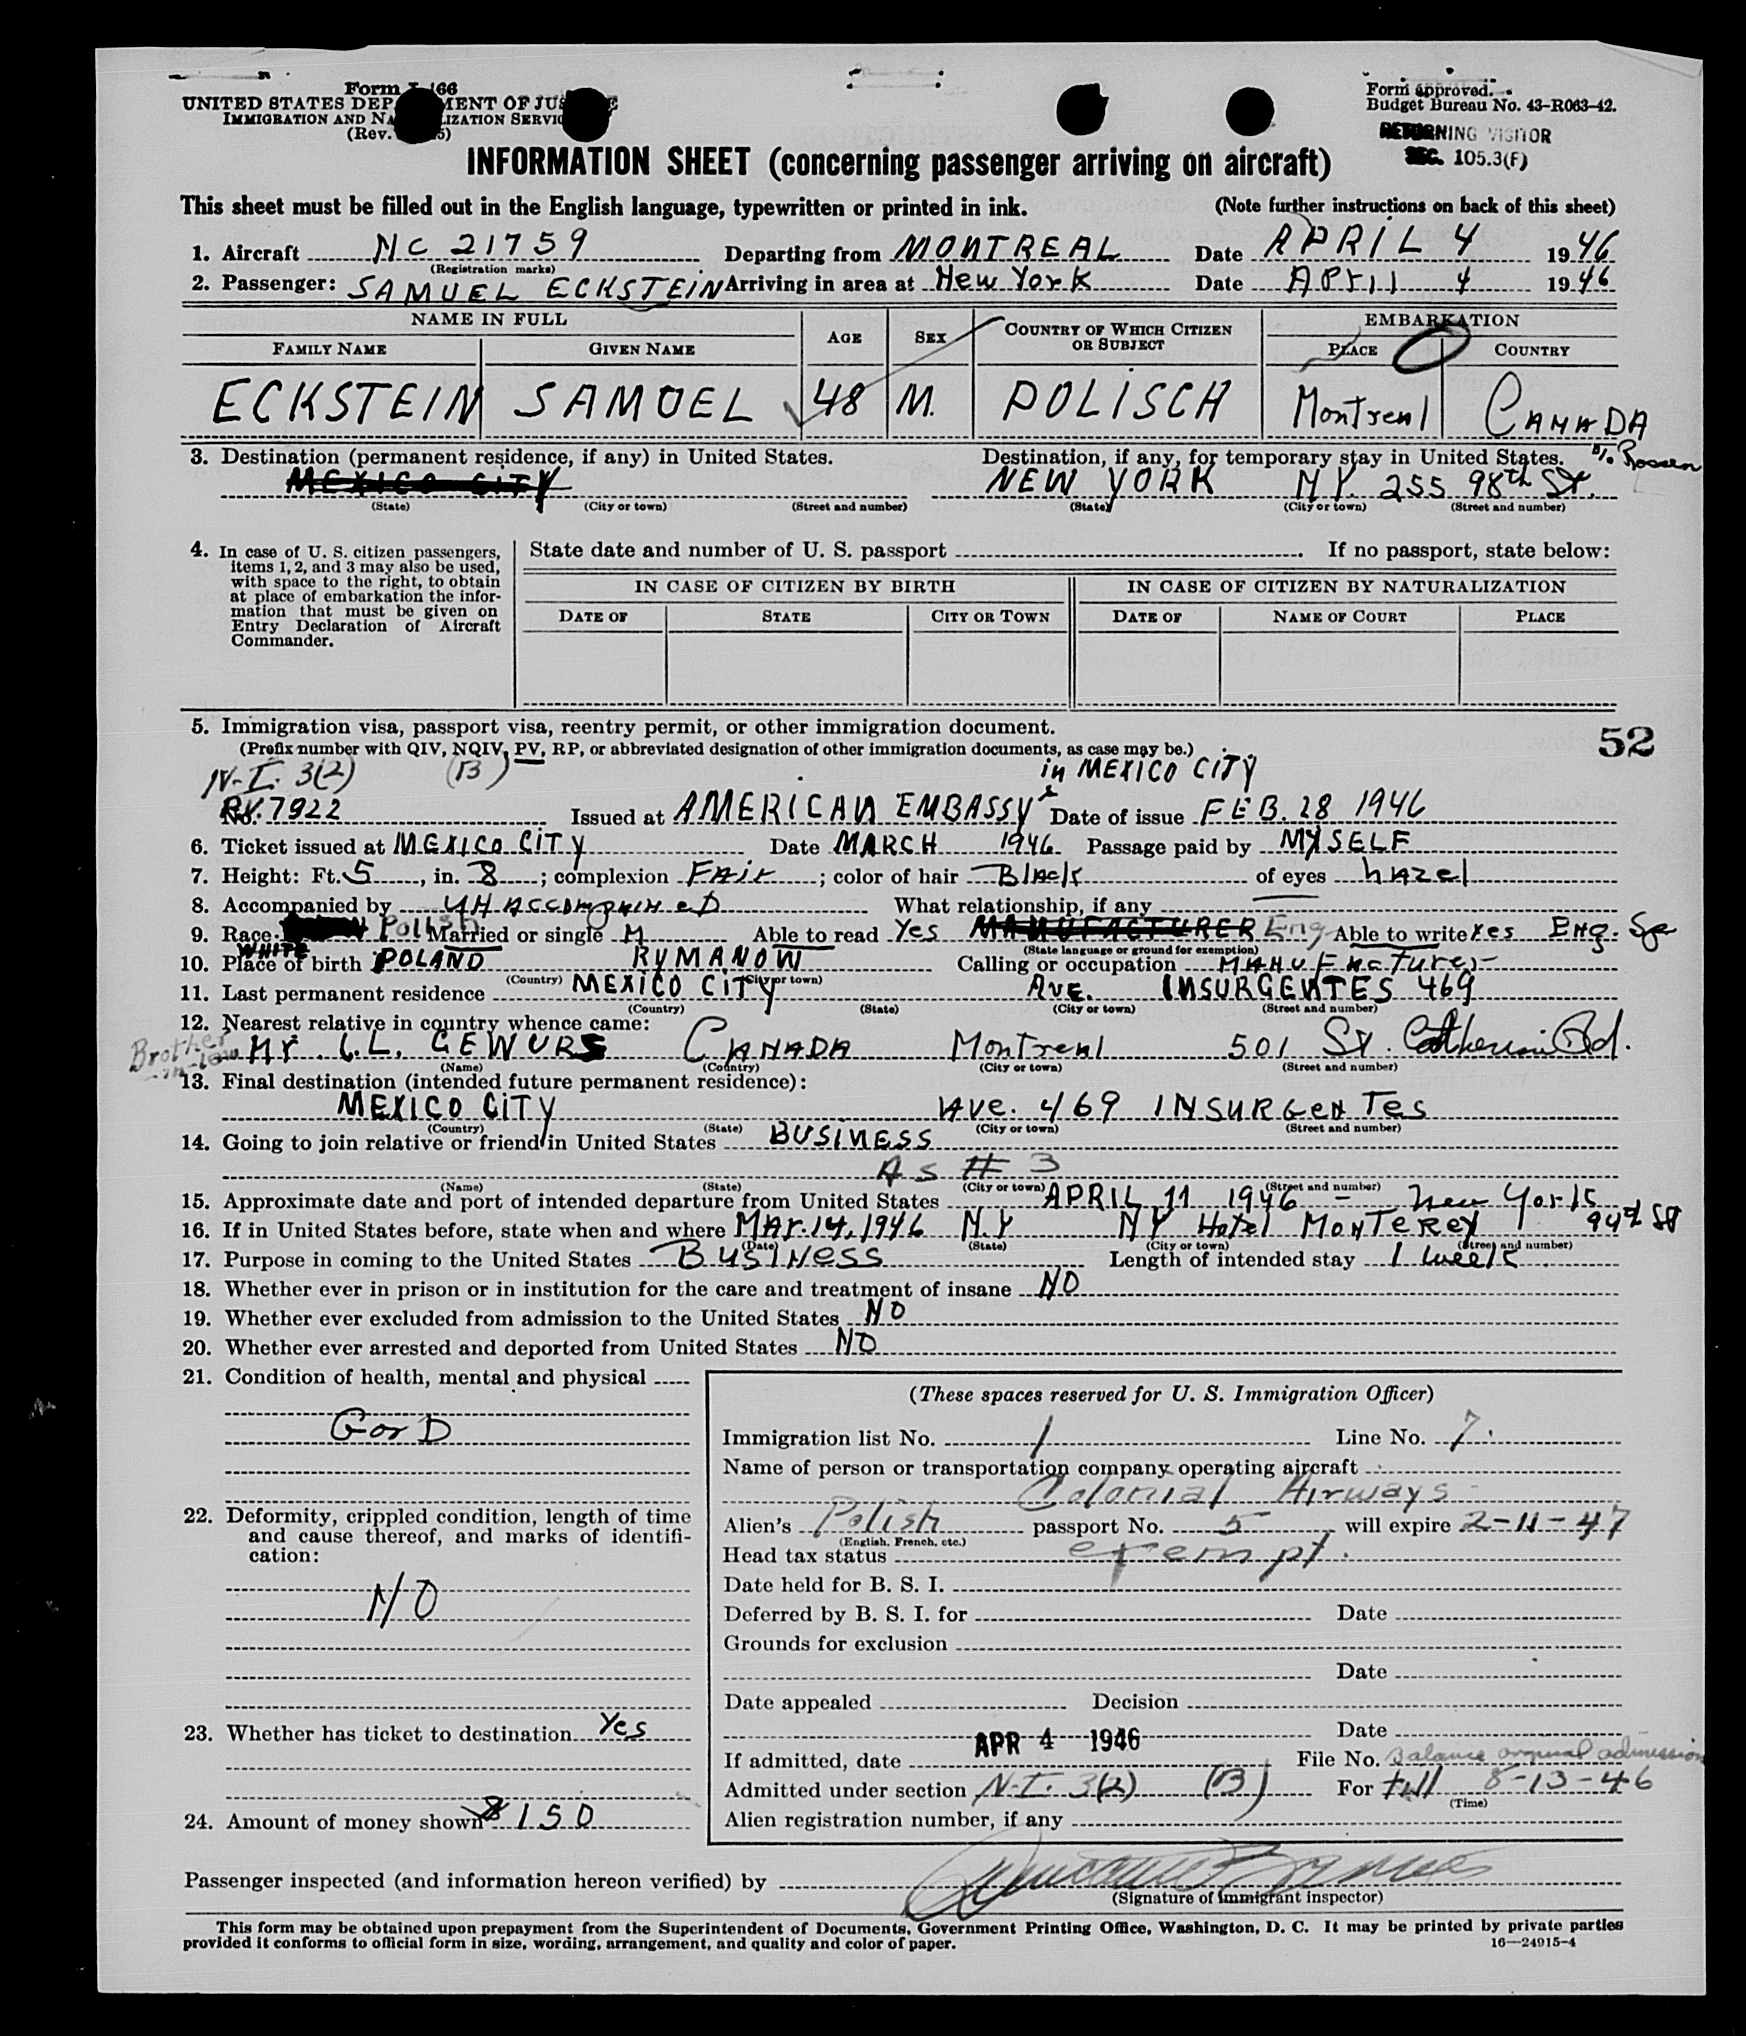 Form 66
UNITED STATES DEP MENT OF JUS
IMMIGRATION AND NA IZATION SERVIC
(Rev. 5)
Form approved.
Budget Bureau No. 43-R063-42.
RETURNING VISITOR
SEC. 105.3(F)
INFORMATION SHEET (concerning passenger arriving on aircraft)
This sheet must be filled out in the English language, typewritten or printed in ink. (Note further instructions on back of this sheet)
1. Aircraft NC 21759 Departing from MONTREAL Date APRIL 4 1946
(Registration marks)
2. Passenger: SAMUEL ECKSTEIN Arriving in area at New York Date April 4 1946
NAME IN FULL AGE SEX COUNTRY OF WHICH CITIZEN OR SUBJECT EMBARKATION
FAMILY NAME GIVEN NAME PLACE COUNTRY
ECKSTEIN SAMUEL 48 M. POLISCH Montreal CANADA
3. Destination (permanent residence, if any) in United States. Destination, if any, for temporary stay in United States. c/o Rossen
MEXICO CITY NEW YORK N.Y. 255 98th St.
(State) (City or town) (Street and number) (State) (City or town) (Street and number)
4. In case of U. S. citizen passengers, items 1, 2, and 3 may also be used, with space to the right, to obtain at place of embarkation the information that must be given on Entry Declaration of Aircraft Commander.
State date and number of U. S. passport . If no passport, state below:
IN CASE OF CITIZEN BY BIRTH IN CASE OF CITIZEN BY NATURALIZATION
DATE OF STATE CITY OR TOWN DATE OF NAME OF COURT PLACE
5. Immigration visa, passport visa, reentry permit, or other immigration document. 52
(Prefix number with QIV, NQIV, PV, RP, or abbreviated designation of other immigration documents, as case may be.)
N-I. 3(2) (B) in MEXICO CITY
No. 7922 Issued at AMERICAN EMBASSY Date of issue FEB. 28 1946
6. Ticket issued at MEXICO CITY Date MARCH 1946 Passage paid by MYSELF
7. Height: Ft. 5, in. 8; complexion FAir; color of hair Black of eyes hazel
8. Accompanied by UNACCOMPAINED What relationship, if any —
9. Race Polish Married or single M Able to read Yes MANUFACTURER Eng Able to write Yes Eng. Sp
WHITE (State language or ground for exemption)
10. Place of birth POLAND RYMANOW Calling or occupation MANUFacturer
(Country) (City or town)
11. Last permanent residence MEXICO CITY AVE. INSURGENTES 469
(Country) (State) (City or town) (Street and number)
12. Nearest relative in country whence came:
Brother in-law Mr. I.L. GEWURS CANADA Montreal 501 St. Catherine Rd.
(Name) (Country) (City or town) (Street and number)
13. Final destination (intended future permanent residence):
MEXICO CITY AVE. 469 INSURGENTES
(Country) (State) (City or town) (Street and number)
14. Going to join relative or friend in United States BUSINESS
As # 3
(Name) (State) (City or town) (Street and number)
15. Approximate date and port of intended departure from United States APRIL 11 1946 — New York
16. If in United States before, state when and where MAr. 14, 1946 N.Y NY Hotel MONTEREY 94th St
(Date) (State) (City or town) (Street and number)
17. Purpose in coming to the United States BUSINESS Length of intended stay 1 week
18. Whether ever in prison or in institution for the care and treatment of insane NO
19. Whether ever excluded from admission to the United States NO
20. Whether ever arrested and deported from United States NO
21. Condition of health, mental and physical
GooD
22. Deformity, crippled condition, length of time and cause thereof, and marks of identification:
NO
23. Whether has ticket to destination Yes
24. Amount of money shown $150
(These spaces reserved for U. S. Immigration Officer)
Immigration list No. 1 Line No. 7
Name of person or transportation company operating aircraft
Colonial Airways
Alien's Polish passport No. 5 will expire 2-11-47
(English, French, etc.)
Head tax status exempt.
Date held for B. S. I.
Deferred by B. S. I. for Date
Grounds for exclusion
Date
Date appealed Decision
Date
If admitted, date APR 4 1946 File No. Balance original admission
Admitted under section N-I. 3(2) (B) For till 8-13-46
(Time)
Alien registration number, if any
Passenger inspected (and information hereon verified) by
(Signature of immigrant inspector)
This form may be obtained upon prepayment from the Superintendent of Documents, Government Printing Office, Washington, D. C. It may be printed by private parties
provided it conforms to official form in size, wording, arrangement, and quality and color of paper. 16—24915-4